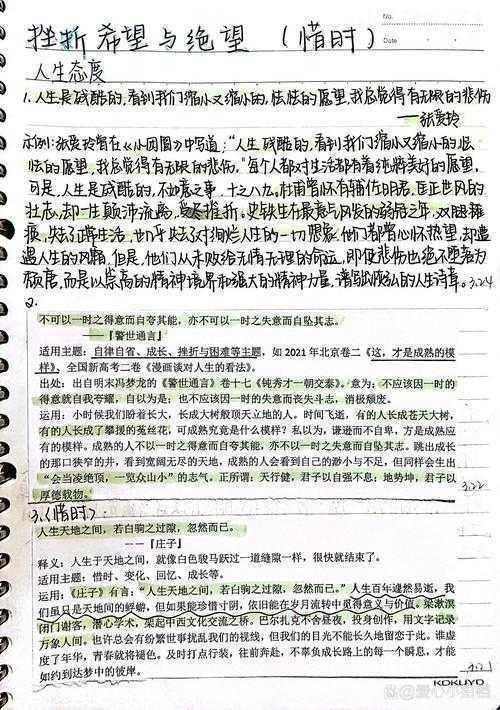 No.
Date
挫折 希望与绝望 (惜时)
人生态度
1.人生是残酷的,看到我们缩小又缩小的,怯怯的愿望,我总觉得有无限的悲伤
——张爱玲
示例:张爱玲曾在《小团圆》中写道:"人生残酷的,看到我们缩小又缩小的怯
怯的愿望,我总觉得有无限的悲伤。"每个人都对生活都有着绝美好的愿望,
可是,人生是残酷的,不如意之事,十之八九。杜甫曾怀有辅佐明君,匡正世风的
壮志,却一生颠沛流离,受尽挫折。史铁生在最意气风发的弱冠之年,双腿瘫
痪,失去正常生活,也几乎失去了对绚烂人生的一切想象。他们都曾心怀热望,却遭
遇人生的风霜。但是,他们从未败给无情无理的命运,即使悲伤也绝不堕落为
颓唐,而是以崇高的精神境界和强大的精神力量,谱写出恢弘的人生诗章。3.24
2.
不可以一时之得意而自夸其能,亦不可以一时之失意而自坠其志。
——『警世通言』
适用主题:自律自省、成长、挫折与困难等主题,如 2021 年北京卷二《这,才是成熟的模
样》、全国新高考二卷《漫画谈对人生的看法》。
出处:出自明末冯梦龙的《警世通言》卷十七《钝秀才一朝交泰》。意为:不应该因一时的
得意就自我夸耀,自以为是;也不应该因一时的失意而丧失斗志,消极颓废。
运用:小时候我们盼着长大,长成大树般顶天立地的人。时间飞逝,有的人长成苍天大树,
有的人长成了攀援的菟丝花,可成熟究竟是什么模样?私以为,谦逊而不自卑,方是成熟应
有的模样。成熟的人不以一时之得意而自夸其能,亦不以一时之失意而自坠其志。跳出成长
的那口狭窄的井,看到宽阔无尽的天地,成熟的人会看到自己的渺小与不足,但同样会生出
"会当凌绝顶,一览众山小"的志气,正所谓:天行健,君子以自强不息;地势坤,君子以
厚德载物。
3.22
3.《惜时》:
人生天地之间,若白驹之过隙,忽然而已。
——『庄子』
释义:人生于天地之间,就像白色骏马跃过一道缝隙一样,很快就结束了。
适用主题:惜时、变化、回忆、成长等。
运用:《庄子》有言:"人生天地之间,若白驹之过隙,忽然而已。"人生百年遽然易逝,我
们虽只是天地间的蜉蝣,但如果能珍惜寸阴,依旧能在岁月流转中觅得意义与价值。梁漱溟
闭门谢客,潜心学术,架起中西文化交流之桥。巴尔扎克不舍昼夜,投身创作,用文字记录
万象人间。也许总会有纷繁世事扰乱我们的视线,但我们的目光不能长久地留恋于此。谁虚
度了年华,青春就将褪色。及时打点行装,往前奔赴,不辜负成长路上的每一个瞬息,才能
如约到达梦中的彼岸。
KOKUYO